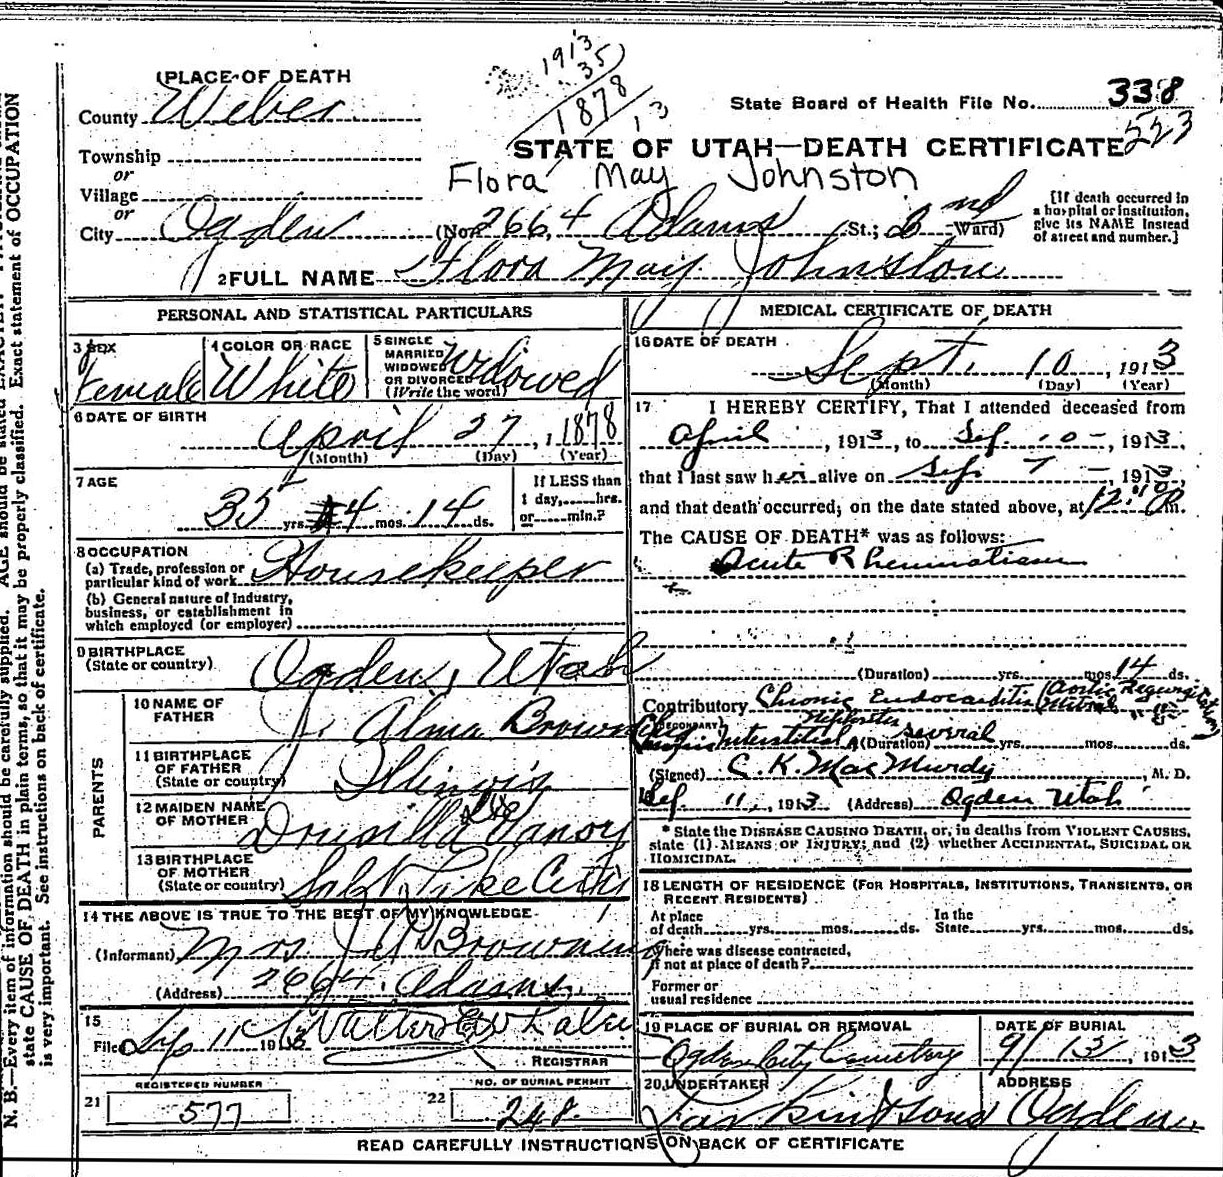 N. B.—Every item of information should be carefully supplied. AGE should be stated EXACTLY.
state CAUSE OF DEATH in plain terms, so that it may be properly classified. Exact statement of OCCUPATION
is very important. See instructions on back of certificate.
1913
35
1878
13
State Board of Health File No. 338
523
STATE OF UTAH—DEATH CERTIFICATE
Flora May Johnston
1 PLACE OF DEATH
County Weber
Township
or
Village
or
City Ogden (No. 2664 Adams St.; 2nd Ward)
[If death occurred in
a hospital or institution,
give its NAME instead
of street and number.]
2 FULL NAME Flora May Johnston
PERSONAL AND STATISTICAL PARTICULARS
3 SEX
Female
4 COLOR OR RACE
White
5 SINGLE
MARRIED
WIDOWED
OR DIVORCED
(Write the word)
Widowed
6 DATE OF BIRTH
April 27, 1878
(Month) (Day) (Year)
7 AGE
35 yrs. 4 mos. 14 ds.
If LESS than
1 day, hrs.
or min.?
8 OCCUPATION
(a) Trade, profession or
particular kind of work Housekeeper
(b) General nature of industry,
business, or establishment in
which employed (or employer)
9 BIRTHPLACE
(State or country) Ogden, Utah
PARENTS
10 NAME OF
FATHER J. Alma Browning
11 BIRTHPLACE
OF FATHER
(State or country) Illinois
12 MAIDEN NAME
OF MOTHER Drusilla
13 BIRTHPLACE
OF MOTHER
(State or country) Salt Lake City
14 THE ABOVE IS TRUE TO THE BEST OF MY KNOWLEDGE
(Informant) Mrs. J A Browning
(Address) 2664 Adams
15
Filed Sep 11 1913 Walter
REGISTRAR
REGISTERED NUMBER
21 577
NO. OF BURIAL PERMIT
22 248
MEDICAL CERTIFICATE OF DEATH
16 DATE OF DEATH
Sept. 10, 1913
(Month) (Day) (Year)
17 I HEREBY CERTIFY, That I attended deceased from
April, 1913, to Sep. 10-, 1913,
that I last saw her alive on Sep. 7 -, 1913,
and that death occurred, on the date stated above, at m.
The CAUSE OF DEATH* was as follows:
Acute Rheumatism
(Duration) yrs. mos. 14 ds.
Contributory Chronic Endocarditis (Aortic Regurgitation
(SECONDARY) Mitral " "
Interstitial Nephritis (Duration) several yrs. mos. ds.
(Signed) C. K. MacMurdy, M. D.
Sep 11, 1913 (Address) Ogden Utah
* State the DISEASE CAUSING DEATH, or, in deaths from VIOLENT CAUSES,
state (1) MEANS OF INJURY; and (2) whether ACCIDENTAL, SUICIDAL OR
HOMICIDAL.
18 LENGTH OF RESIDENCE (FOR HOSPITALS, INSTITUTIONS, TRANSIENTS, OR
RECENT RESIDENTS)
At place
of death yrs. mos. ds.
In the
State yrs. mos. ds.
Where was disease contracted,
if not at place of death?
Former or
usual residence
19 PLACE OF BURIAL OR REMOVAL
Ogden City Cemetery
DATE OF BURIAL
9/13, 1913
20 UNDERTAKER
Larkin & Sons
ADDRESS
Ogden
READ CAREFULLY INSTRUCTIONS ON BACK OF CERTIFICATE